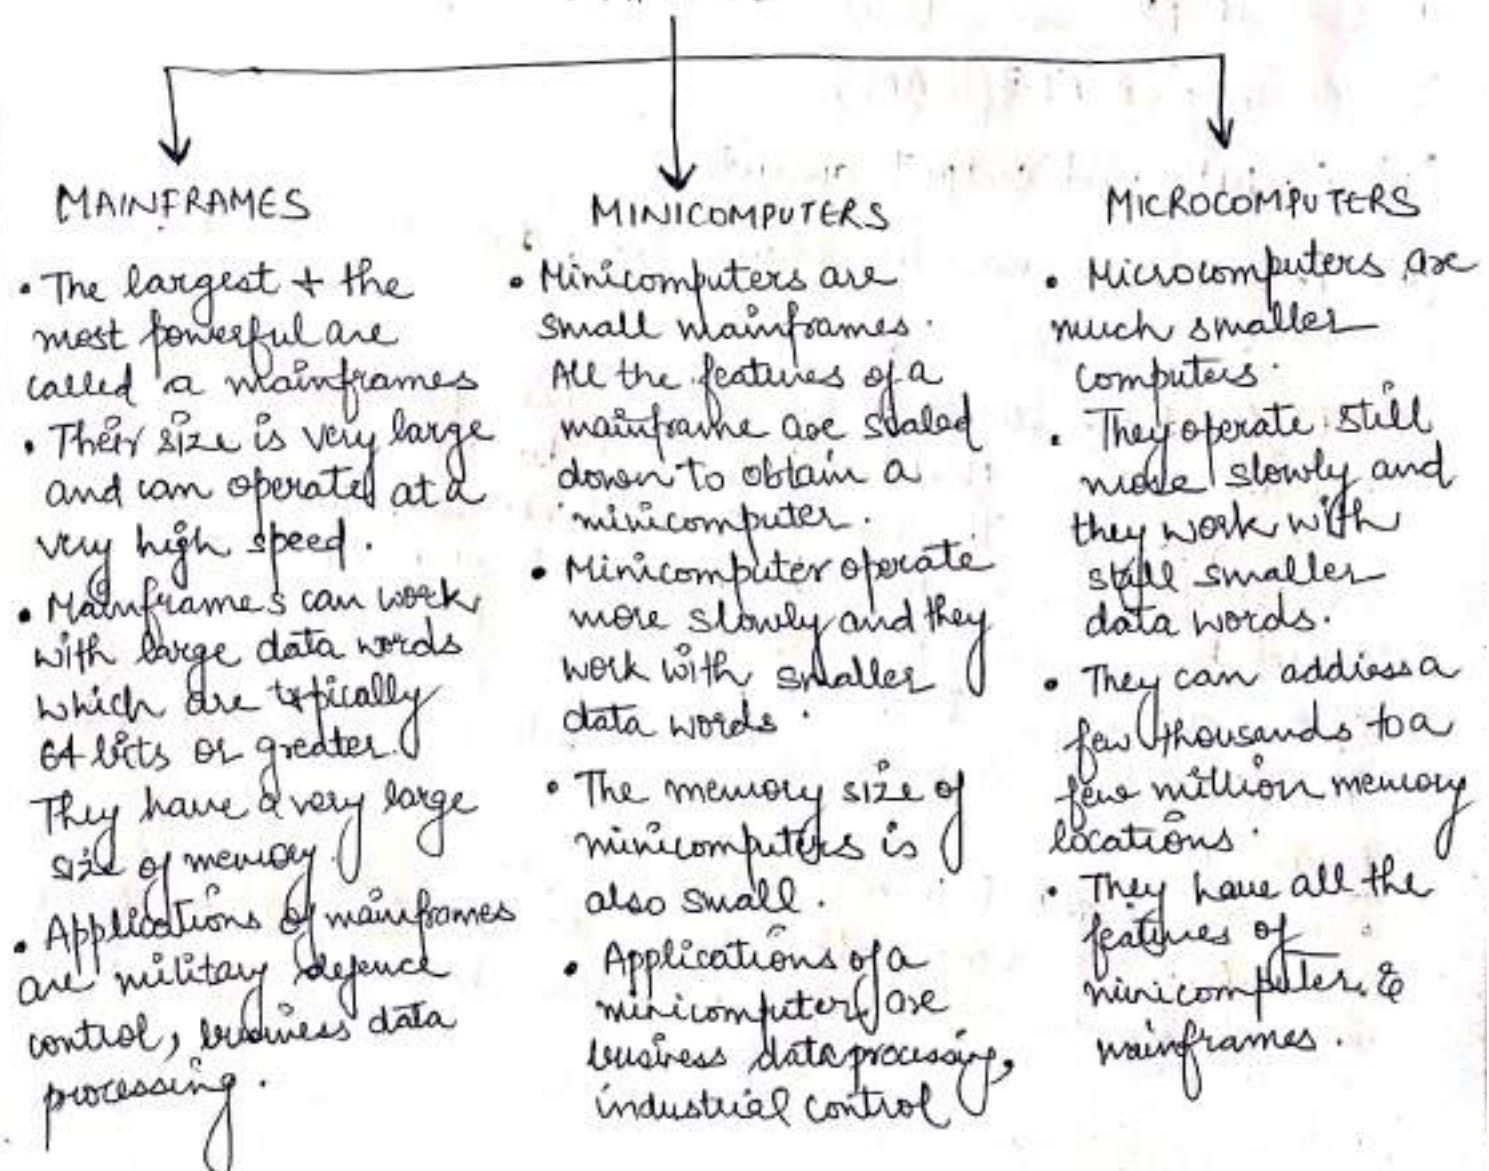 MAINFRAMES
• The largest + the
most powerful are
called a mainframes
• Their size is very large
and can operated at a
very high speed.
• Mainframes can work
with large data words
which are typically
64 bits or greater.
They have a very large
size of memory.
• Applications of mainframes
are military defence
control, business data
processing.
MINICOMPUTERS
• Minicomputers are
small mainframes.
All the features of a
mainframe are scaled
down to obtain a
minicomputer.
• Minicomputer operate
more slowly and they
work with smaller
data words.
• The memory size of
minicomputers is
also small.
• Applications of a
minicomputer are
business data processing,
industrial control
MICROCOMPUTERS
• Microcomputers are
much smaller
computers.
• They operate still
more slowly and
they work with
still smaller
data words.
• They can address a
few thousands to a
few million memory
locations.
• They have all the
features of
minicomputer &
mainframes.